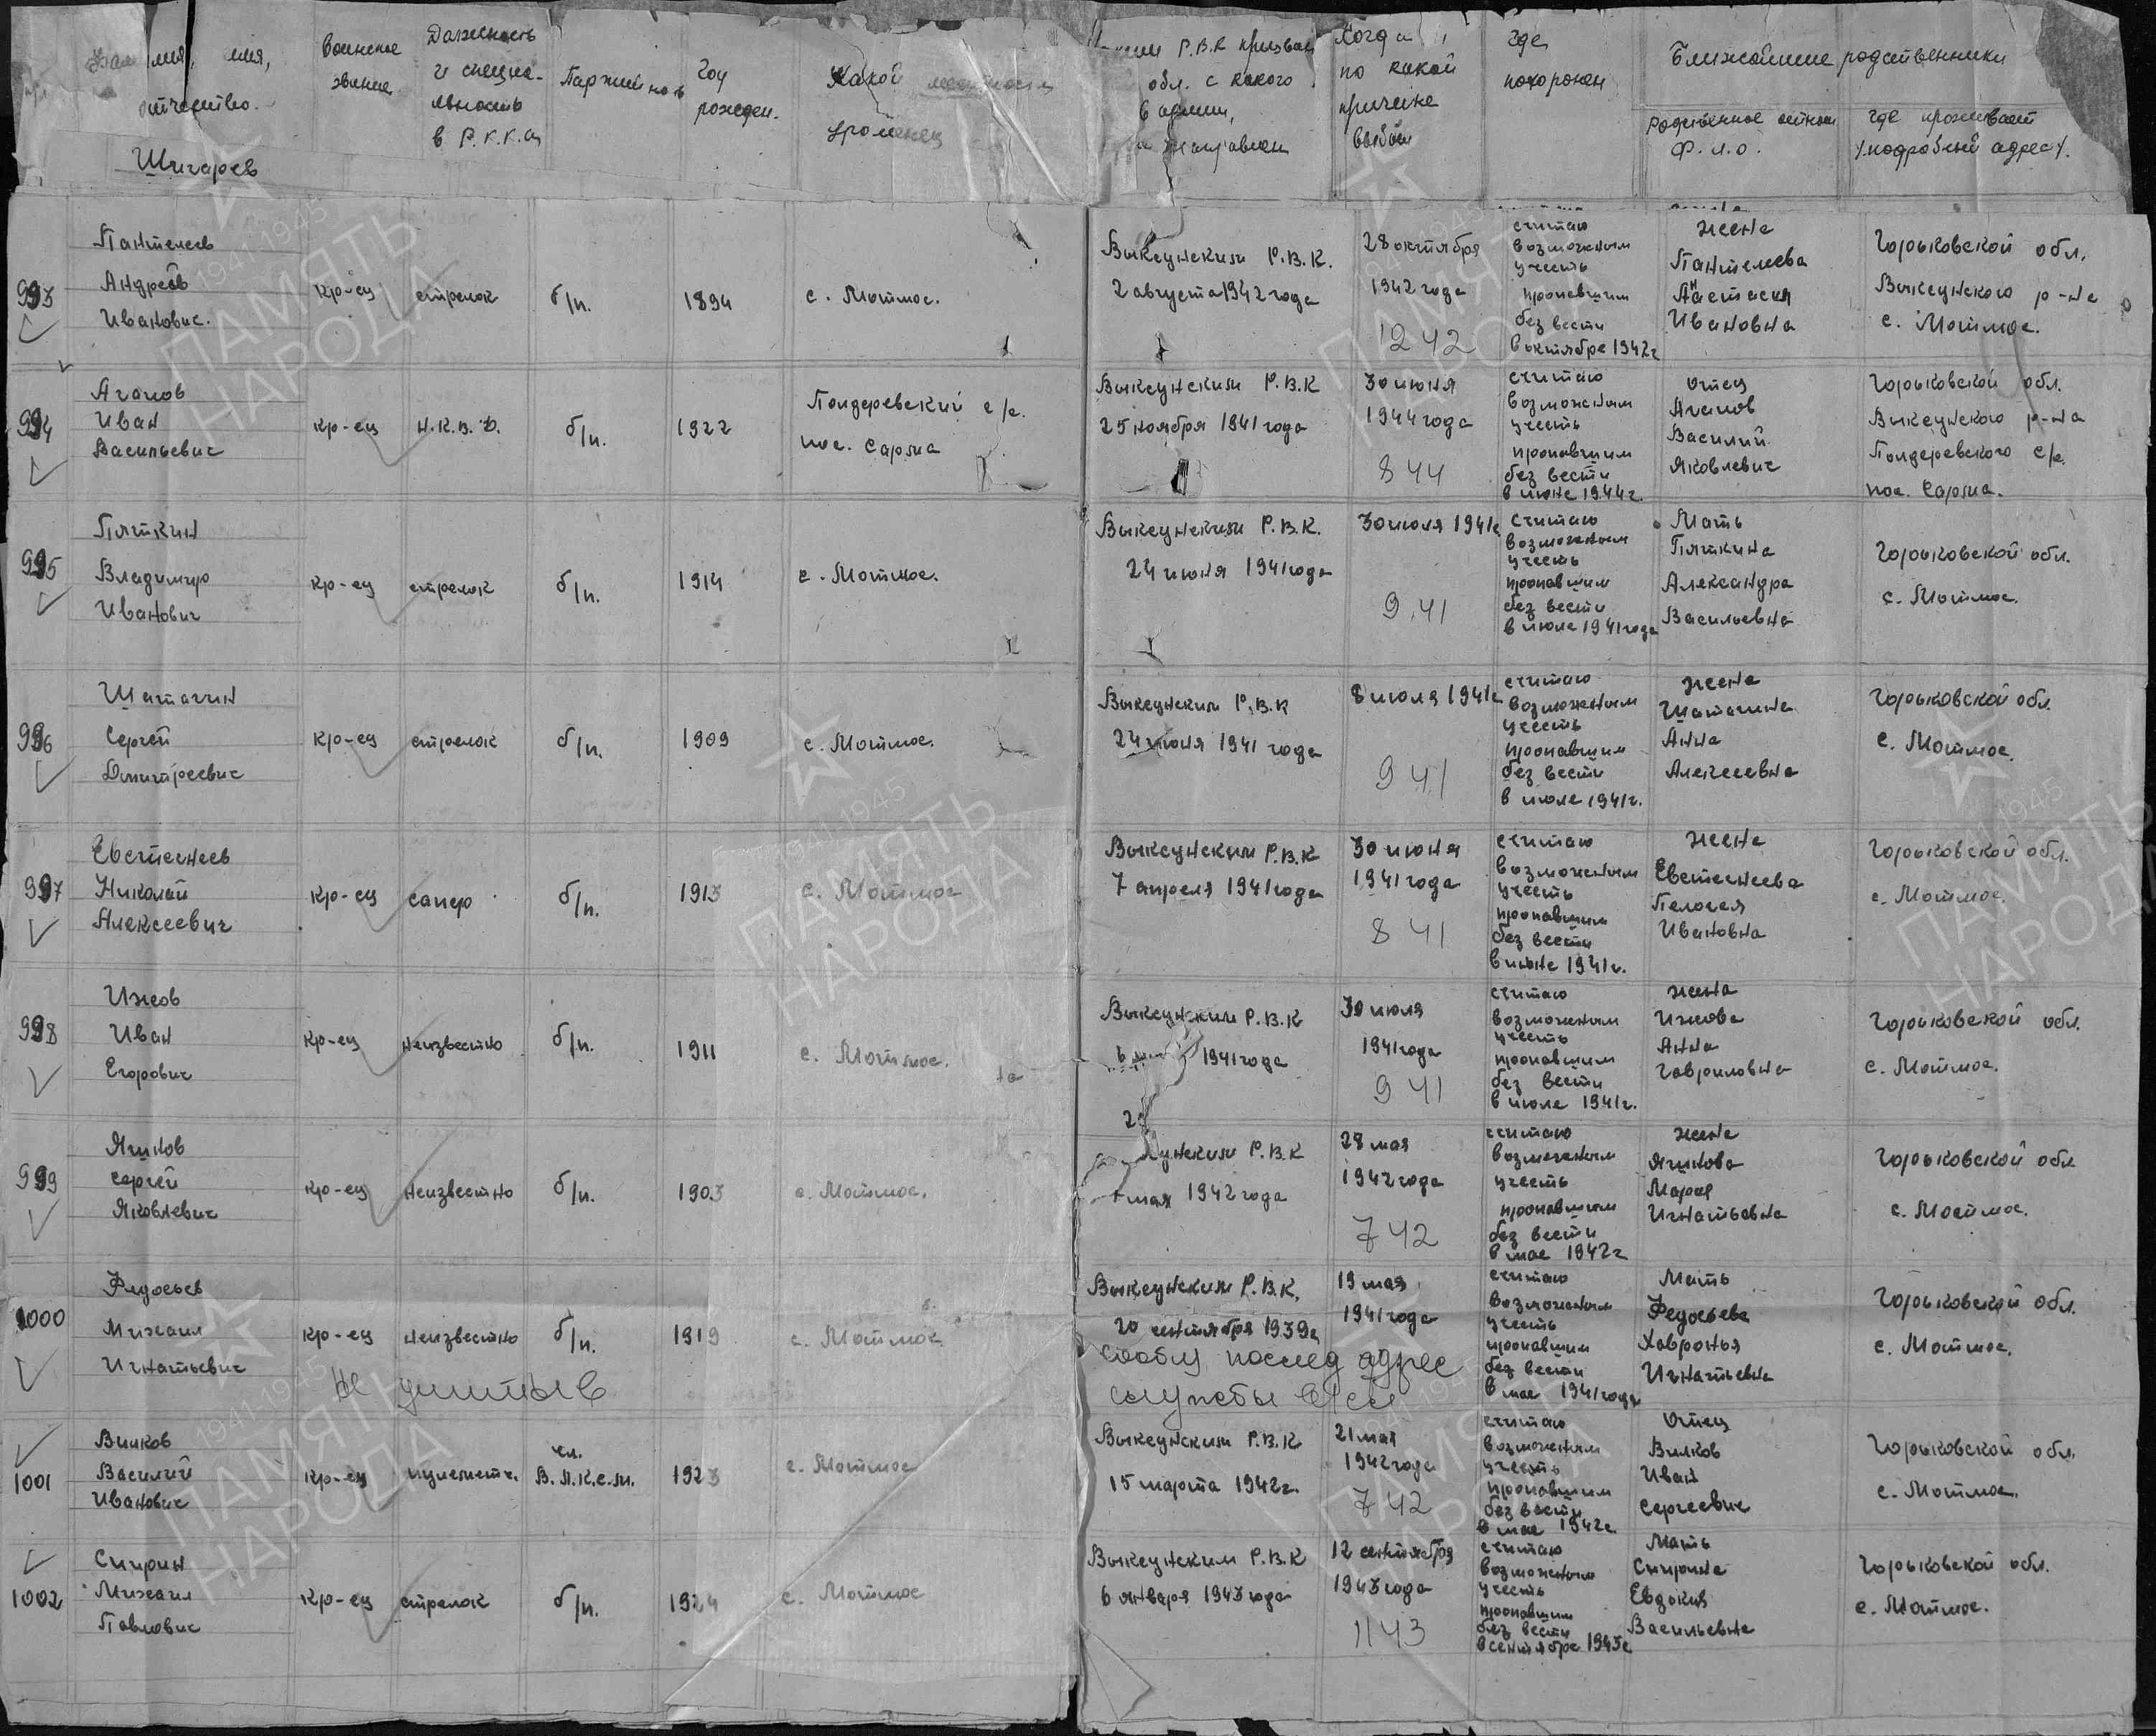 Фамилия, имя,
отчество.
Воинское
звание
Должность
и специа-
льность
в Р.К.К.А
Партийность
Год
рожден.
Какой местности
уроженец
Р.В.К призван
обл. с какого
в армии,
направлен
Когда и
по какой
причине
выбыл
Где
похоронен
Ближайшие родственники
Родственное отнош
Ф.И.О.
где проживает
/подробный адрес/.
Шигарев
993
Пантелеев
Андрей
Иванович.
кр-ец
стрелок
б/п.
1894
с. Мотмос.
Выксунским Р.В.К.
2 августа 1942 года
28 октября
1942 года
12 42
считаю
возможным
учесть
пропавшим
без вести
в октябре 1942г
жена
Пантелеева
Анастасия
Ивановна
Горьковской обл.
Выксунского р-на
с. Мотмос.
994
Агапов
Иван
Васильевич
кр-ец
Н.К.В.Д.
б/п.
1922
Пондеревский с/с.
пос. Сарма
Выксунским Р.В.К
25 ноября 1841 года
30 июня
1944 года
8 44
считаю
возможным
учесть
пропавшим
без вести
в июне 1944г.
отец
Агапов
Василий
Яковлевич
Горьковской обл.
Выксунского р-на
Пондеревского с/с.
пос. Сарма.
995
Пяткин
Владимир
Иванович
кр-ец
стрелок
б/п.
1914
с. Мотмос.
Выксунским Р.В.К.
24 июня 1941 года
30 июля 1941г
9.41
считаю
возможным
учесть
пропавшим
без вести
в июле 1941 года
Мать
Пяткина
Александра
Васильевна
Горьковской обл.
с. Мотмос.
996
Шатагин
Сергей
Дмитриевич
кр-ец
стрелок
б/п.
1909
с. Мотмос.
Выксунским Р.В.К
24 июня 1941 года
8 июля 1941г
9 41
считаю
возможным
учесть
пропавшим
без вести
в июле 1941г.
жена
Шатагина
Анна
Алексеевна
Горьковской обл.
с. Мотмос.
997
Евстегнеев
Николай
Алексеевич
кр-ец
сапер
б/п.
1913
с. Мотмос
Выксунским Р.В.К
7 апреля 1941 года
30 июня
1941 года
8 41
считаю
возможным
учесть
пропавшим
без вести
в июне 1941г.
жена
Евстегнеева
Пелогея
Ивановна
Горьковской обл.
с. Мотмос.
998
Ижов
Иван
Егорович
кр-ец
неизвестно
б/п.
1911
с. Мотмос.
Выксунским Р.В.К
6 1941 года
30 июля
1941 года
9 41
считаю
возможным
учесть
пропавшим
без вести
в июле 1941г.
жена
Ижова
Анна
Гавриловна
Горьковской обл.
с. Мотмос.
999
Яшков
Сергей
Яковлевич
кр-ец
неизвестно
б/п.
1903
с. Мотмос.
Р.В.К
мая 1942 года
28 мая
1942 года
7 42
считаю
возможным
учесть
пропавшим
без вести
в мае 1942г
жена
Яшкова
Мария
Игнатьевна
Горьковской обл
с. Мотмос.
1000
Федосеев
Михаил
Игнатьевич
кр-ец
неизвестно
б/п.
1919
с. Мотмос
не учитыв
Выксунским Р.В.К.
20 сентября 1939г
сообщ послед адрес
службы
19 мая
1941 года
считаю
возможным
учесть
пропавшим
без вести
в мае 1941 года
Мать
Федосеева
Хавронья
Игнатьевна
Горьковской обл.
с. Мотмос.
1001
Вилков
Василий
Иванович
кр-ец
пулеметч.
чл.
В.Л.К.С.М.
1923
с. Мотмос
Выксунским Р.В.К
15 марта 1942г.
21 мая
1942 года
7 42
считаю
возможным
учесть
пропавшим
без вести
в мае 1942г.
Отец
Вилков
Иван
Сергеевич
Горьковской обл.
с. Мотмос.
1002
Спирин
Михаил
Павлович
кр-ец
стрелок
б/п.
1924
с. Мотмос
Выксунским Р.В.К
6 января 1943 года
12 сентября
1943 года
11 43
считаю
возможным
учесть
пропавшим
без вести
в сентябре 1943г
Мать
Спирина
Евдокия
Васильевна
Горьковской обл.
с. Мотмос.
ПАМЯТЬ
НАРОДА
1941-1945